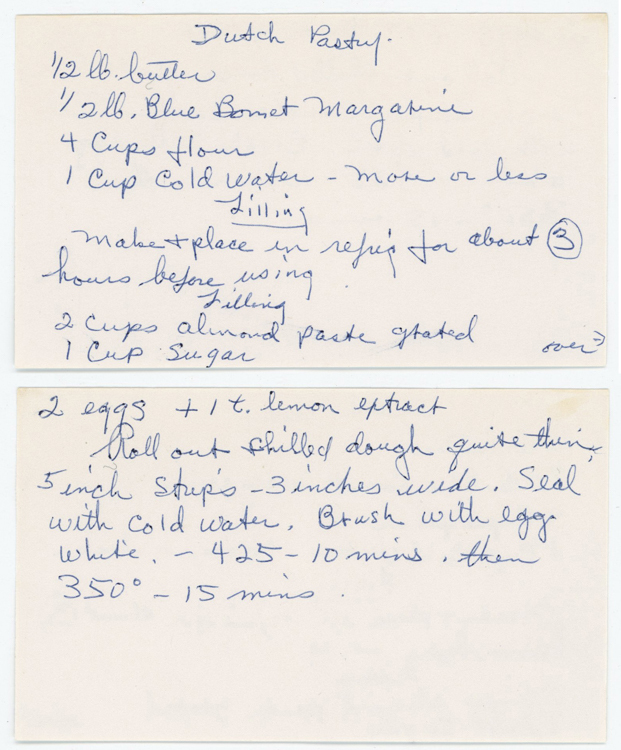 Dutch Pastry.
1/2 lb. butter
1/2 lb. Blue Bonnet Margarine
4 Cups flour
1 Cup Cold Water - more or less
Filling
Make + place in refrig for about 3
hours before using
Filling
2 Cups almond paste grated
1 Cup Sugar
over →
2 eggs + 1 t. lemon extract
Roll out chilled dough quite thin,
5 inch Strips - 3 inches wide. Seal
with Cold water. Brush with egg
White. - 425 - 10 mins. then
350° - 15 mins.